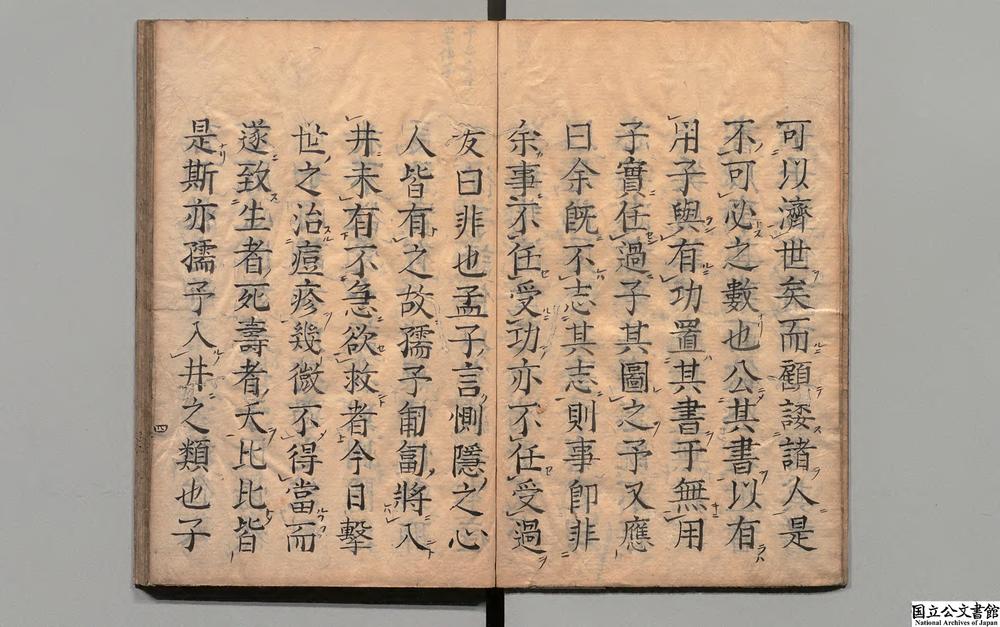 可以濟世矣而顧諉諸人是
不可必之數也公其書以有
用子與有功置其書于無用
子實任過子其圖之予又應
曰余既不志其志則事卽非
余事不任受功亦不任受過
友曰非也孟子言惻隱之心
人皆有之故孺子匍匐將入
井未有不急欲救者今目擊
世之治痘疹幾微不得當而
遂致生者死壽者夭比比皆
是斯亦孺子入井之類也子
四
国立公文書館
National Archives of Japan